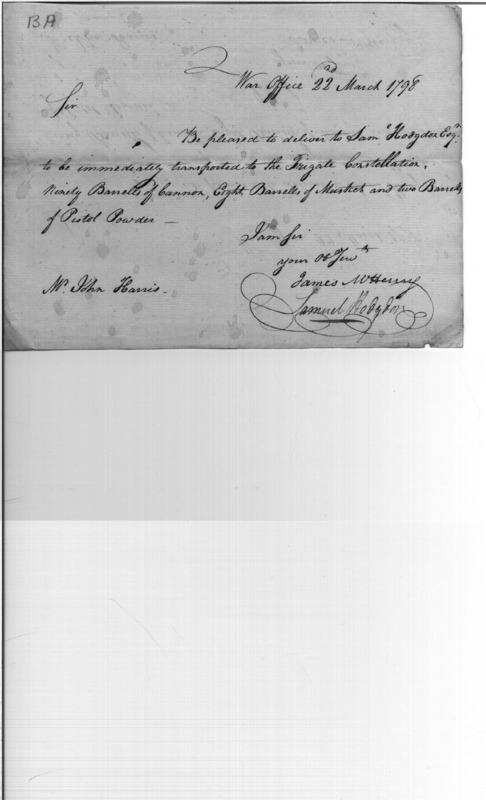 BA
War Office 22d March 1798
Sir
Be pleased to deliver to Saml Hodgdon Esqr.
to be immediately transported to the Frigate Constellation,
Ninety Barrells of Cannon, Eight Barrells of Musket and two Barrells
of Pistol Powder —
I am Sir
your Ob Servt
James McHenry
Samuel Hodgdon
Mr. John Harris.